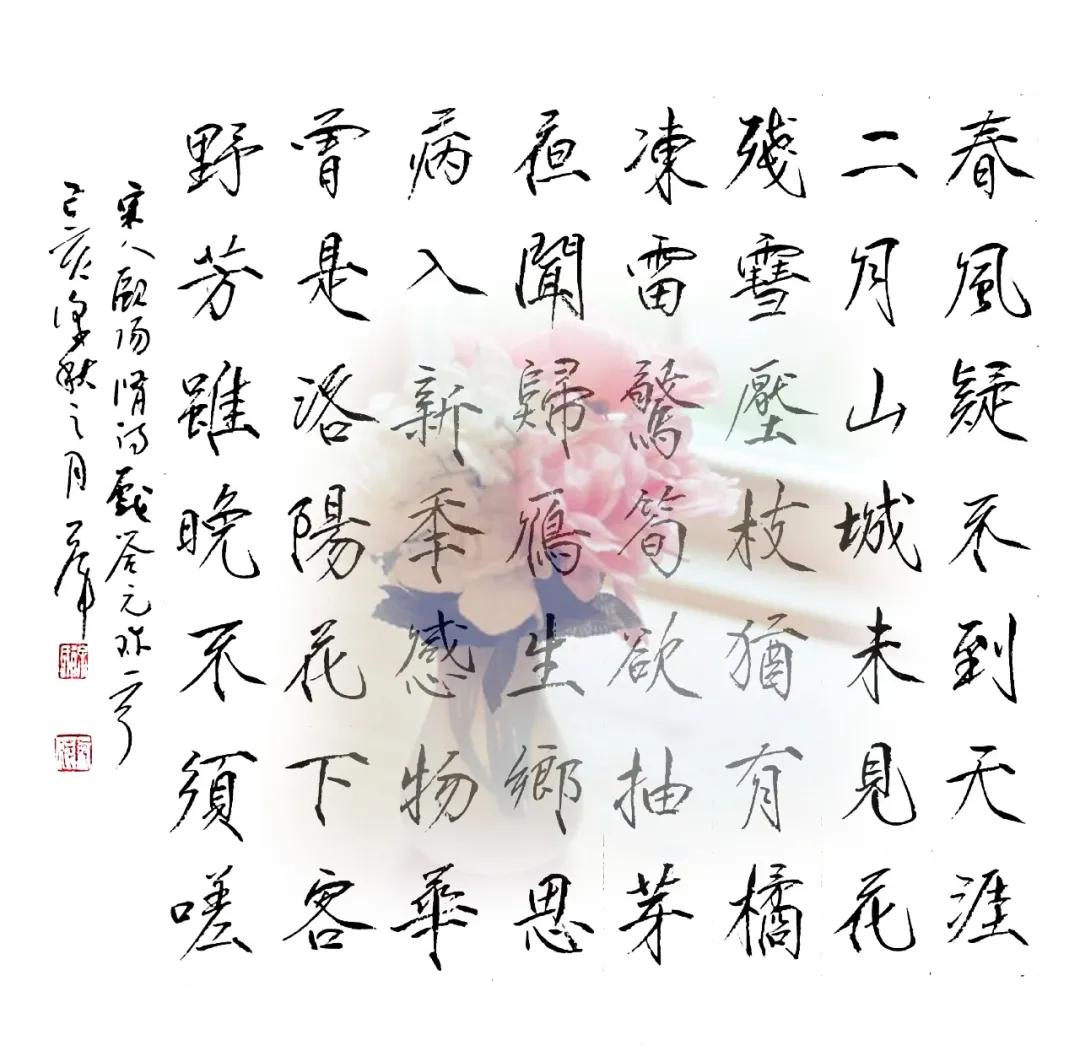 春風疑不到天涯
二月山城未見花
殘雪壓枝猶有橘
凍雷驚筍欲抽芽
夜聞歸鴈生鄉思
病入新秊感物華
曾是洛陽花下客
野芳雖晚不須嗟
宋人歐陽脩詩戲答元珍一首
己亥深秋之月